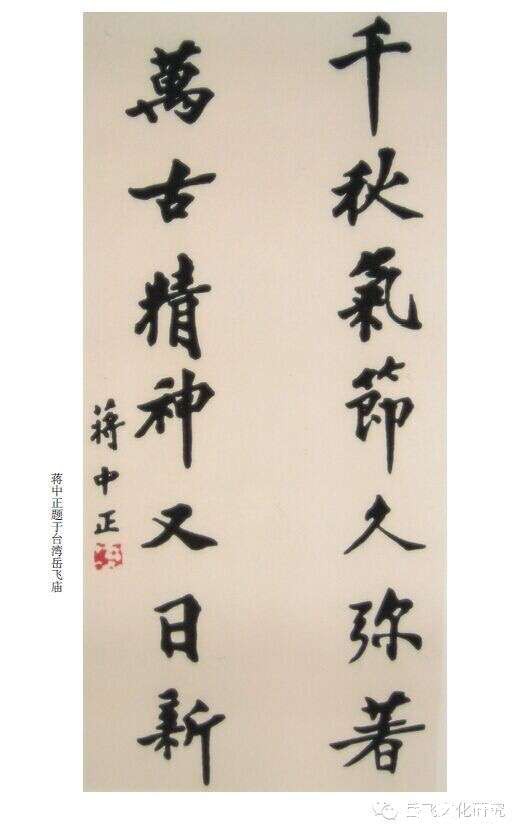 千秋氣節久弥著
萬古精神又日新
蒋中正
蒋中正题于台湾岳飞庙
岳飞文化研究